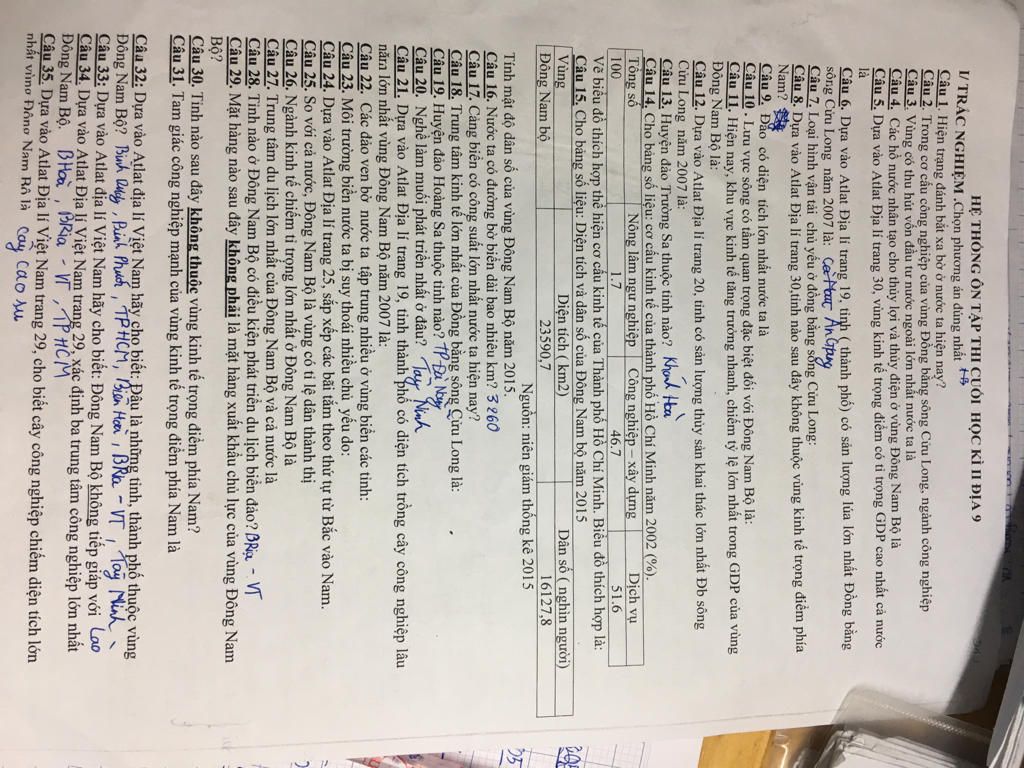 HỆ THỐNG ÔN TẬP THI CUỐI HỌC KÌ II ĐỊA 9
I/ TRẮC NGHIỆM .Chọn phương án đúng nhất
Câu 1. Hiện trạng đánh bắt xa bờ ở nước ta hiện nay?
Câu 2. Trong cơ cấu công nghiệp của vùng Đồng bằng sông Cửu Long, ngành công nghiệp
Câu 3. Vùng có thu hút vốn đầu tư nước ngoài lớn nhất nước ta là
Câu 4. Các hồ nước nhân tạo cho thủy lợi và thủy điện ở vùng Đông Nam Bộ là
Câu 5. Dựa vào Atlat Địa lí trang 30, vùng kinh tế trọng điểm có tỉ trọng GDP cao nhất cả nước
là
Câu 6. Dựa vào Atlat Địa lí trang 19, tỉnh ( thành phố) có sản lượng lúa lớn nhất Đồng bằng
sông Cửu Long năm 2007 là: An Giang
Câu 7. Loại hình vận tải chủ yếu ở đồng bằng sông Cửu Long:
Câu 8. Dựa vào Atlat Địa lí trang 30,tỉnh nào sau đây không thuộc vùng kinh tế trọng điểm phía
Nam?
Câu 9. Đảo có diện tích lớn nhất nước ta là
Câu 10 - Lưu vực sông có tầm quan trọng đặc biệt đối với Đông Nam Bộ là:
Câu 11. Hiện nay, khu vực kinh tế tăng trưởng nhanh, chiếm tỷ lệ lớn nhất trong GDP của vùng
Đông Nam Bộ là:
Câu 12. Dựa vào Atlat Địa lí trang 20, tỉnh có sản lượng thủy sản khai thác lớn nhất Đb sông
Cửu Long năm 2007 là:
Câu 13. Huyện đảo Trường Sa thuộc tỉnh nào? Khánh Hoà
Câu 14. Cho bảng số liệu: cơ cấu kinh tế của thành phố Hồ Chí Minh năm 2002 (%).
Tổng số Nông lâm ngư nghiệp Công nghiệp – xây dựng Dịch vụ
100 1.7 46.7 51.6
Vẽ biểu đồ thích hợp thể hiện cơ cấu kinh tế của Thành phố Hồ Chí Minh. Biểu đồ thích hợp là:
Câu 15. Cho bảng số liệu: Diện tích và dân số của Đông Nam bộ năm 2015
Vùng Diện tích ( km2) Dân số ( nghìn người)
Đông Nam bộ 23590,7 16127,8
Nguồn: niên giám thống kê 2015
Tính mật độ dân số của vùng Đông Nam Bộ năm 2015.
Câu 16. Nước ta có đường bờ biển dài bao nhiêu km? 3260
Câu 17. Cảng biển có công suất lớn nhất nước ta hiện nay?
Câu 18. Trung tâm kinh tế lớn nhất của Đồng bằng sông Cửu Long là:
Câu 19. Huyện đảo Hoàng Sa thuộc tỉnh nào? TP Đà Nẵng
Câu 20. Nghề làm muối phát triển nhất ở đâu? Tây Ninh
Câu 21. Dựa vào Atlat Địa lí trang 19, tỉnh thành phố có diện tích trồng cây công nghiệp lâu
năm lớn nhất vùng Đông Nam Bộ năm 2007 là:
Câu 22. Các đảo ven bờ nước ta tập trung nhiều ở vùng biển các tỉnh:
Câu 23. Môi trường biển nước ta bị suy thoái nhiều chủ yếu do:
Câu 24. Dựa vào Atlat Địa lí trang 25, sắp xếp các bãi tắm theo thứ tự từ Bắc vào Nam.
Câu 25. So với cả nước, Đông Nam Bộ là vùng có tỉ lệ dân thành thị
Câu 26. Ngành kinh tế chiếm tỉ trọng lớn nhất ở Đông Nam Bộ là
Câu 27. Trung tâm du lịch lớn nhất của Đông Nam Bộ và cả nước là
Câu 28. Tỉnh nào ở Đông Nam Bộ có điều kiện phát triển du lịch biển đảo? BRịa - VT
Câu 29. Mặt hàng nào sau đây không phải là mặt hàng xuất khẩu chủ lực của vùng Đông Nam
Bộ?
Câu 30. Tỉnh nào sau đây không thuộc vùng kinh tế trọng điểm phía Nam?
Câu 31. Tam giác công nghiệp mạnh của vùng kinh tế trọng điểm phía Nam là
Câu 32: Dựa vào Atlat địa lí Việt Nam hãy cho biết: Đâu là những tỉnh, thành phố thuộc vùng
Đông Nam Bộ? Bình Dương, Bình Phước, TPHCM, Biên Hoà, BRịa - VT, Tây Ninh
Câu 33: Dựa vào Atlat địa lí Việt Nam hãy cho biết: Đông Nam Bộ không tiếp giáp với Lào
Câu 34. Dựa vào Atlat Địa lí Việt Nam trang 29, xác định ba trung tâm công nghiệp lớn nhất
Đông Nam Bộ. BHoà, BRịa - VT, TP HCM
Câu 35. Dựa vào Atlat Địa lí Việt Nam trang 29, cho biết cây công nghiệp chiếm diện tích lớn
nhất vùng Đông Nam Bộ là cây cao su